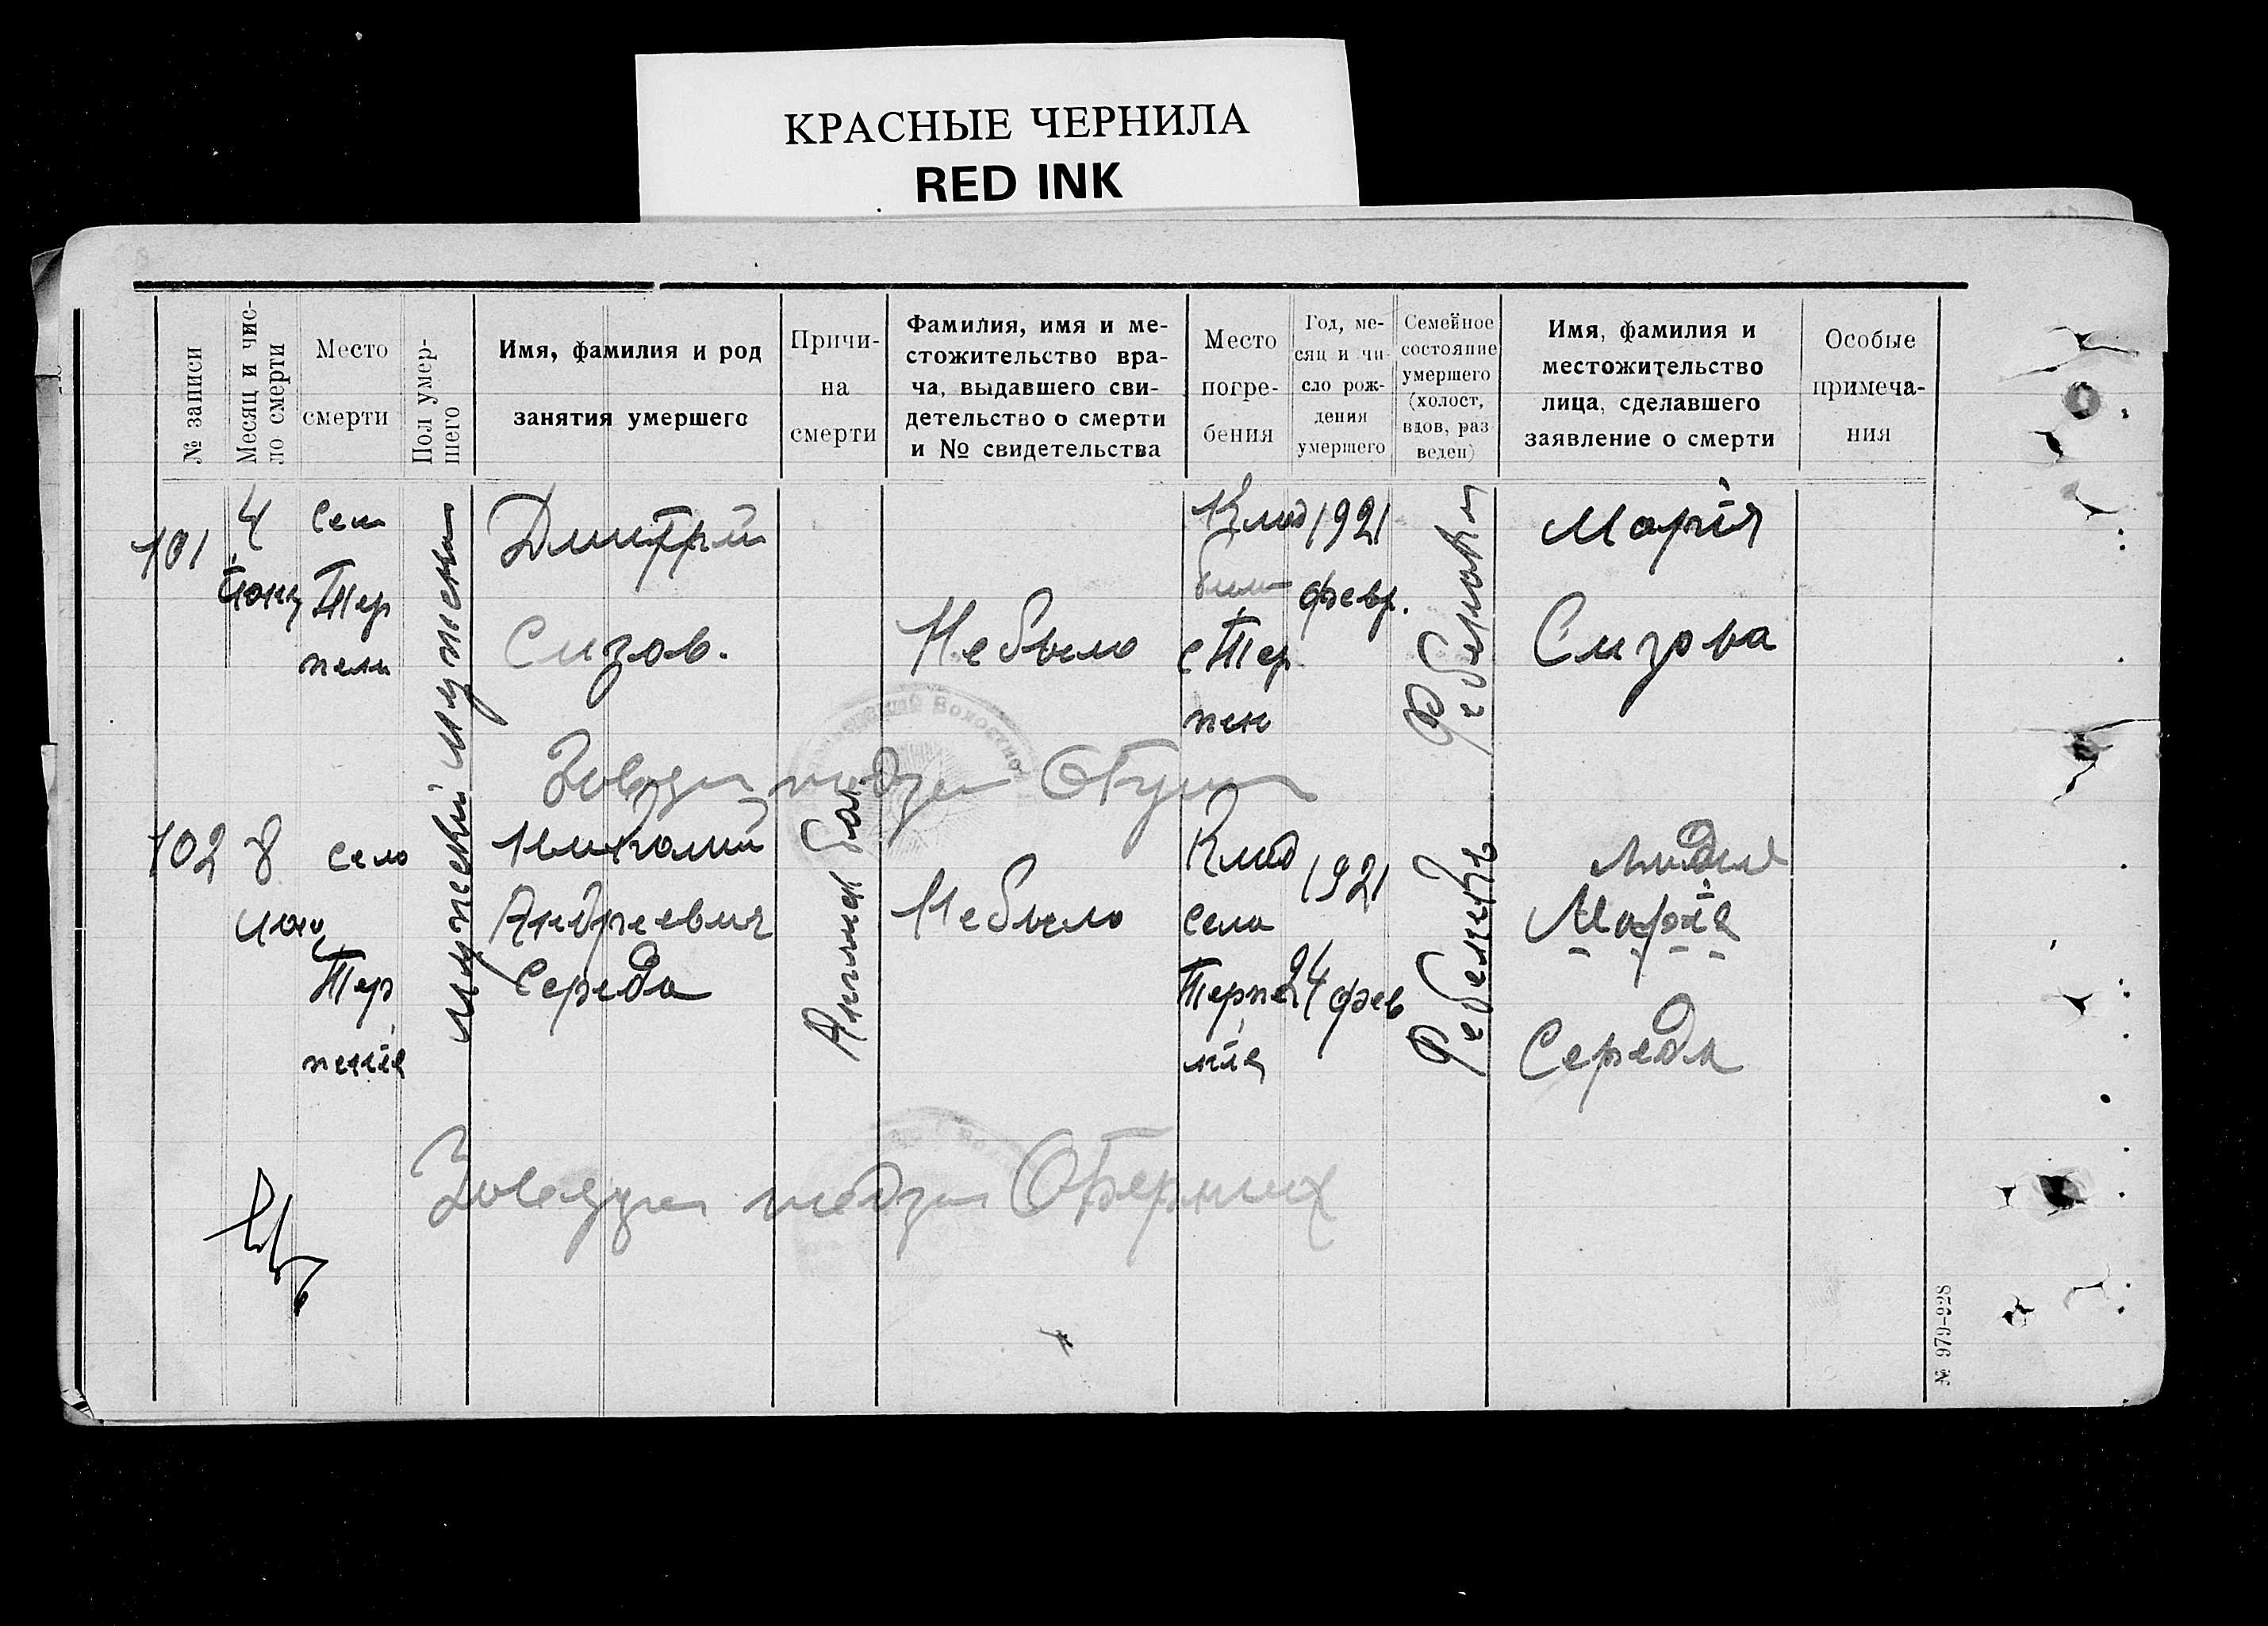 КРАСНЫЕ ЧЕРНИЛА
RED INK
№ записи
Месяц и чис-
ло смерти
Место
смерти
Пол умер-
шего
Имя, фамилия и род
занятия умершего
Причи-
на
смерти
Фамилия, имя и ме-
стожительство вра-
ча, выдавшего сви-
детельство о смерти
и № свидетельства
Место
погре-
бения
Год, ме-
сяц и чи-
сло рож-
дения
умершего
Семейное
состояние
умершего
(холост,
вдов, раз
веден)
Имя, фамилия и
местожительство
лица, сделавшего
заявление о смерти
Особые
примеча-
ния
101
4
Тер
Дмитрій
Сизов.
Не было
Клад
с Тер
пен
1921
февр.
Марія
Сизова
102
8
село
Тер
пеніе
Мужской
Николай
Андреевич
Середа
Не было
Клад
села
Терпе
нія
1921
24 фев
Ребенокъ
Марія
Середа
№ 979-928